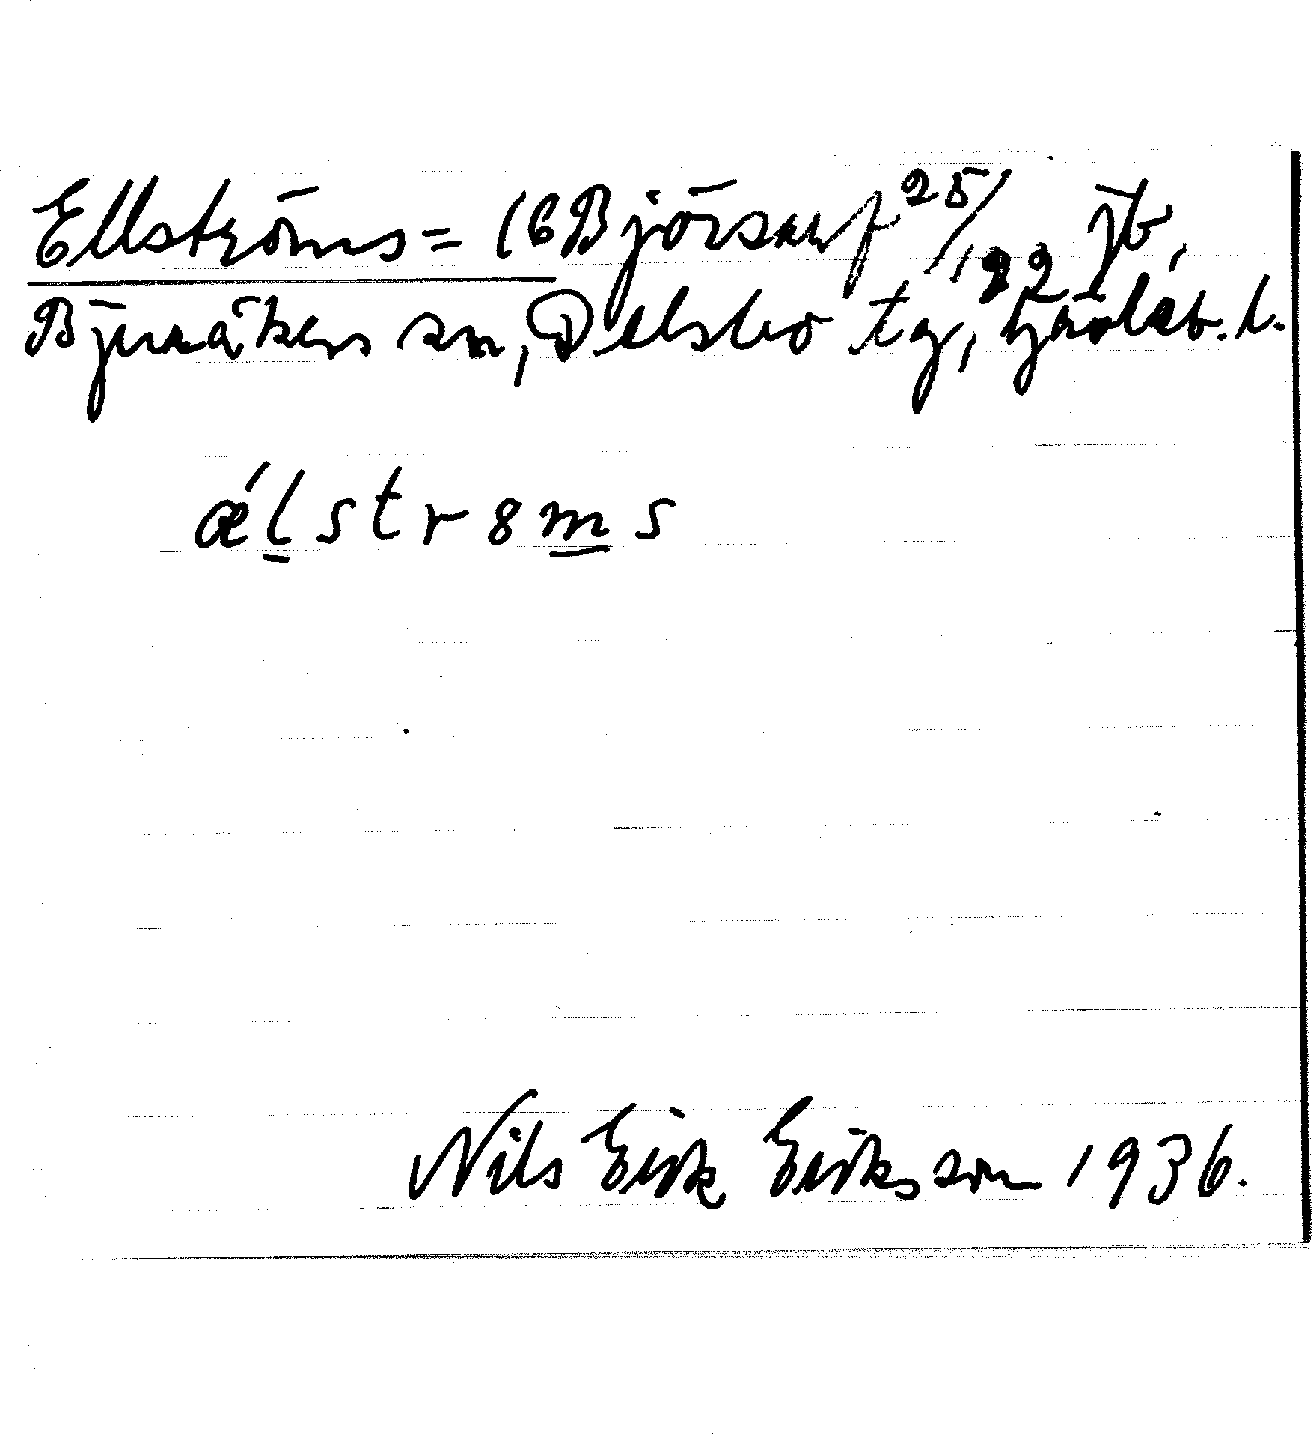 Ellströms = 16 Björsarf 25/122 jb,
Bjuråkers sn, Delsbo tg, Gävleb. l.
ǽlstrꞩms
Nils Erik Eriksson 1936.